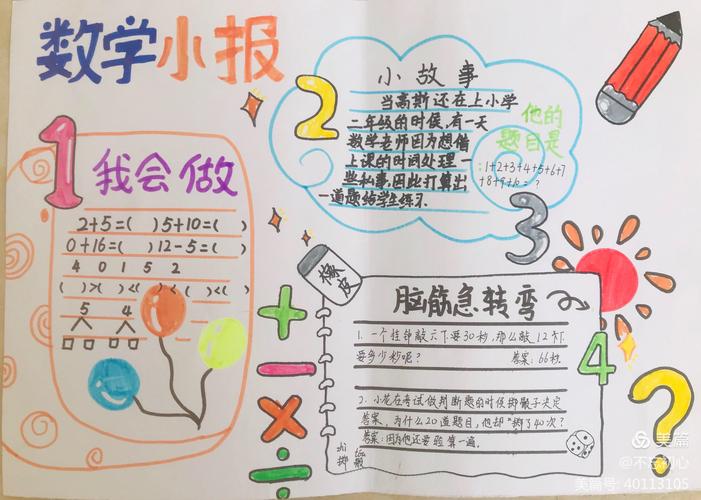 数学小报
1
我会做
2+5=( ) 5+10=( )
0+16=( ) 12-5=( )
4 0 1 5 2
( )>( )<( )<( )<( )
5 4
2
小故事
当高斯还在上小学
二年级的时候,有一天
数学老师因为想借
上课的时间处理一
些私事,因此打算出
一道题给学生练习.
他的
题目是
:1+2+3+4+5+6+7
+8+9+10=?
3
橡皮
脑筋急转弯
1、一个挂钟敲六下要30秒,那么敲12下
要多少秒呢?
答案:66秒.
2、小龙在考试做判断题的时候掷骰子决定
答案,为什么20道题目,他却掷了40次?
答案:因为他还要验算一遍。
4
+
-
×
÷
?
美篇
@不忘初心
美篇号: 40113105